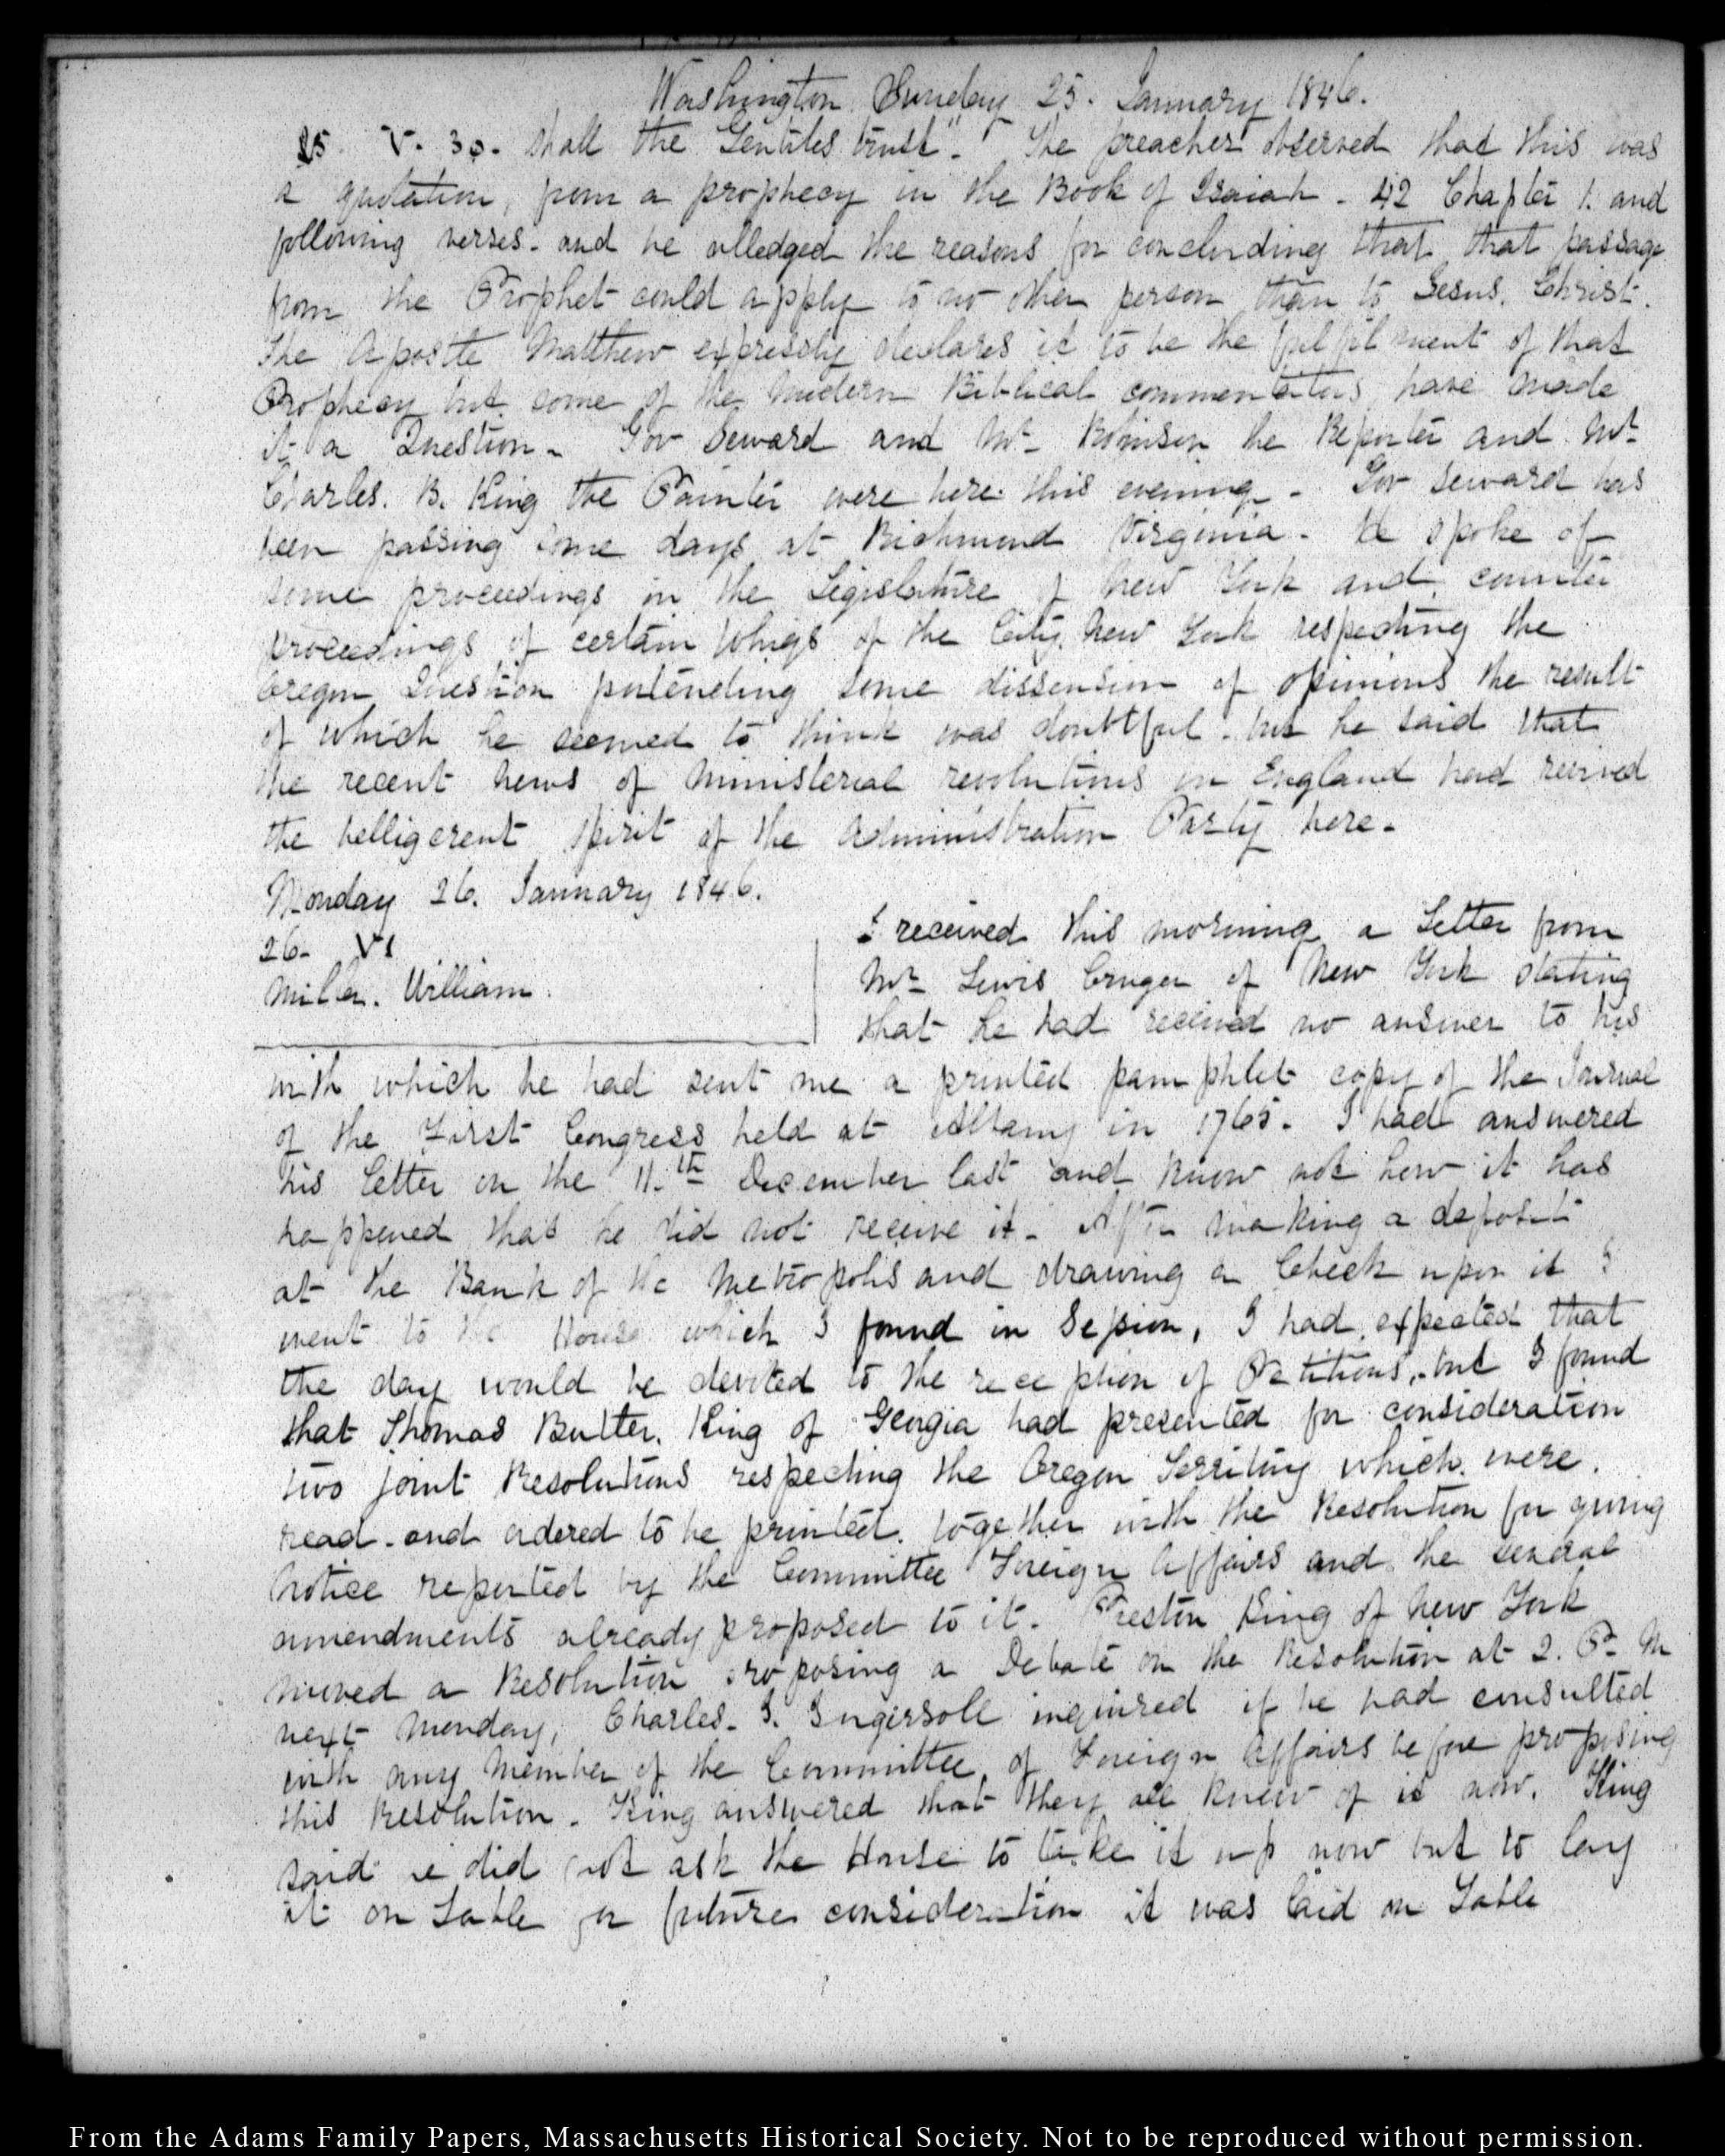 Washington Sunday 25. January 1846.
25. V. 30. shall the Gentiles trust". The preacher observed that this was
a quotation, from a prophecy in the Book of Isaiah. 42 Chapter 1. and
following verses. and he alledged the reasons for concluding that that passage
from the Prophet could apply to no other person than to Jesus. Christ.
The Apostle Matthew expressly declares it to be the fulfilment of that
Prophecy but some of the modern Biblical commentators have made
it a Question. Gov Seward and Mr. Robinson the Reporter and Mr.
Charles. B. King the Painter were here this evening. Gov Seward has
been passing some days at Richmond Virginia. He spoke of
some proceedings in the Legislature of New York and counter
proceedings of certain Whigs of the City New York respecting the
Oregon Question portending some dissension of opinions the result
of which he seemed to think was doubtful. but he said that
the recent news of Ministerial revolutions in England had revived
the belligerent spirit of the Administration Party here.
Monday 26. January 1846.
26. VI
Miller. William.
I received this morning a Letter from
Mr. Lewis Cruger of New York stating
that he had received no answer to his
with which he had sent me a printed pamphlet copy of the Journal
of the First Congress held at Albany in 1765. I had answered
his Letter on the 11.th December last and know not how it has
happened that he did not receive it. After making a deposit
at the Bank of the Metropolis and drawing a Check upon it I
went to the House which I found in Session, I had expected that
the day would be devoted to the reception of Petitions, but I found
that Thomas Butler. King of Georgia had presented for consideration
two joint Resolutions respecting the Oregon Territory which were
read. and ordered to be printed. together with the Resolution for giving
notice reported by the Committee Foreign Affairs and the several
amendments already proposed to it. Preston King of New York
moved a Resolution proposing a Debate on the Resolution at 2. P. M
next Monday, Charles. J. Ingersoll inquired if he had consulted
with any Member of the Committee, of Foreign Affairs before proposing
this Resolution. King answered that they all knew of it now. King
said he did not ask the House to take it up now but to lay
it on Table for future consideration it was laid on Table
From the Adams Family Papers, Massachusetts Historical Society. Not to be reproduced without permission.